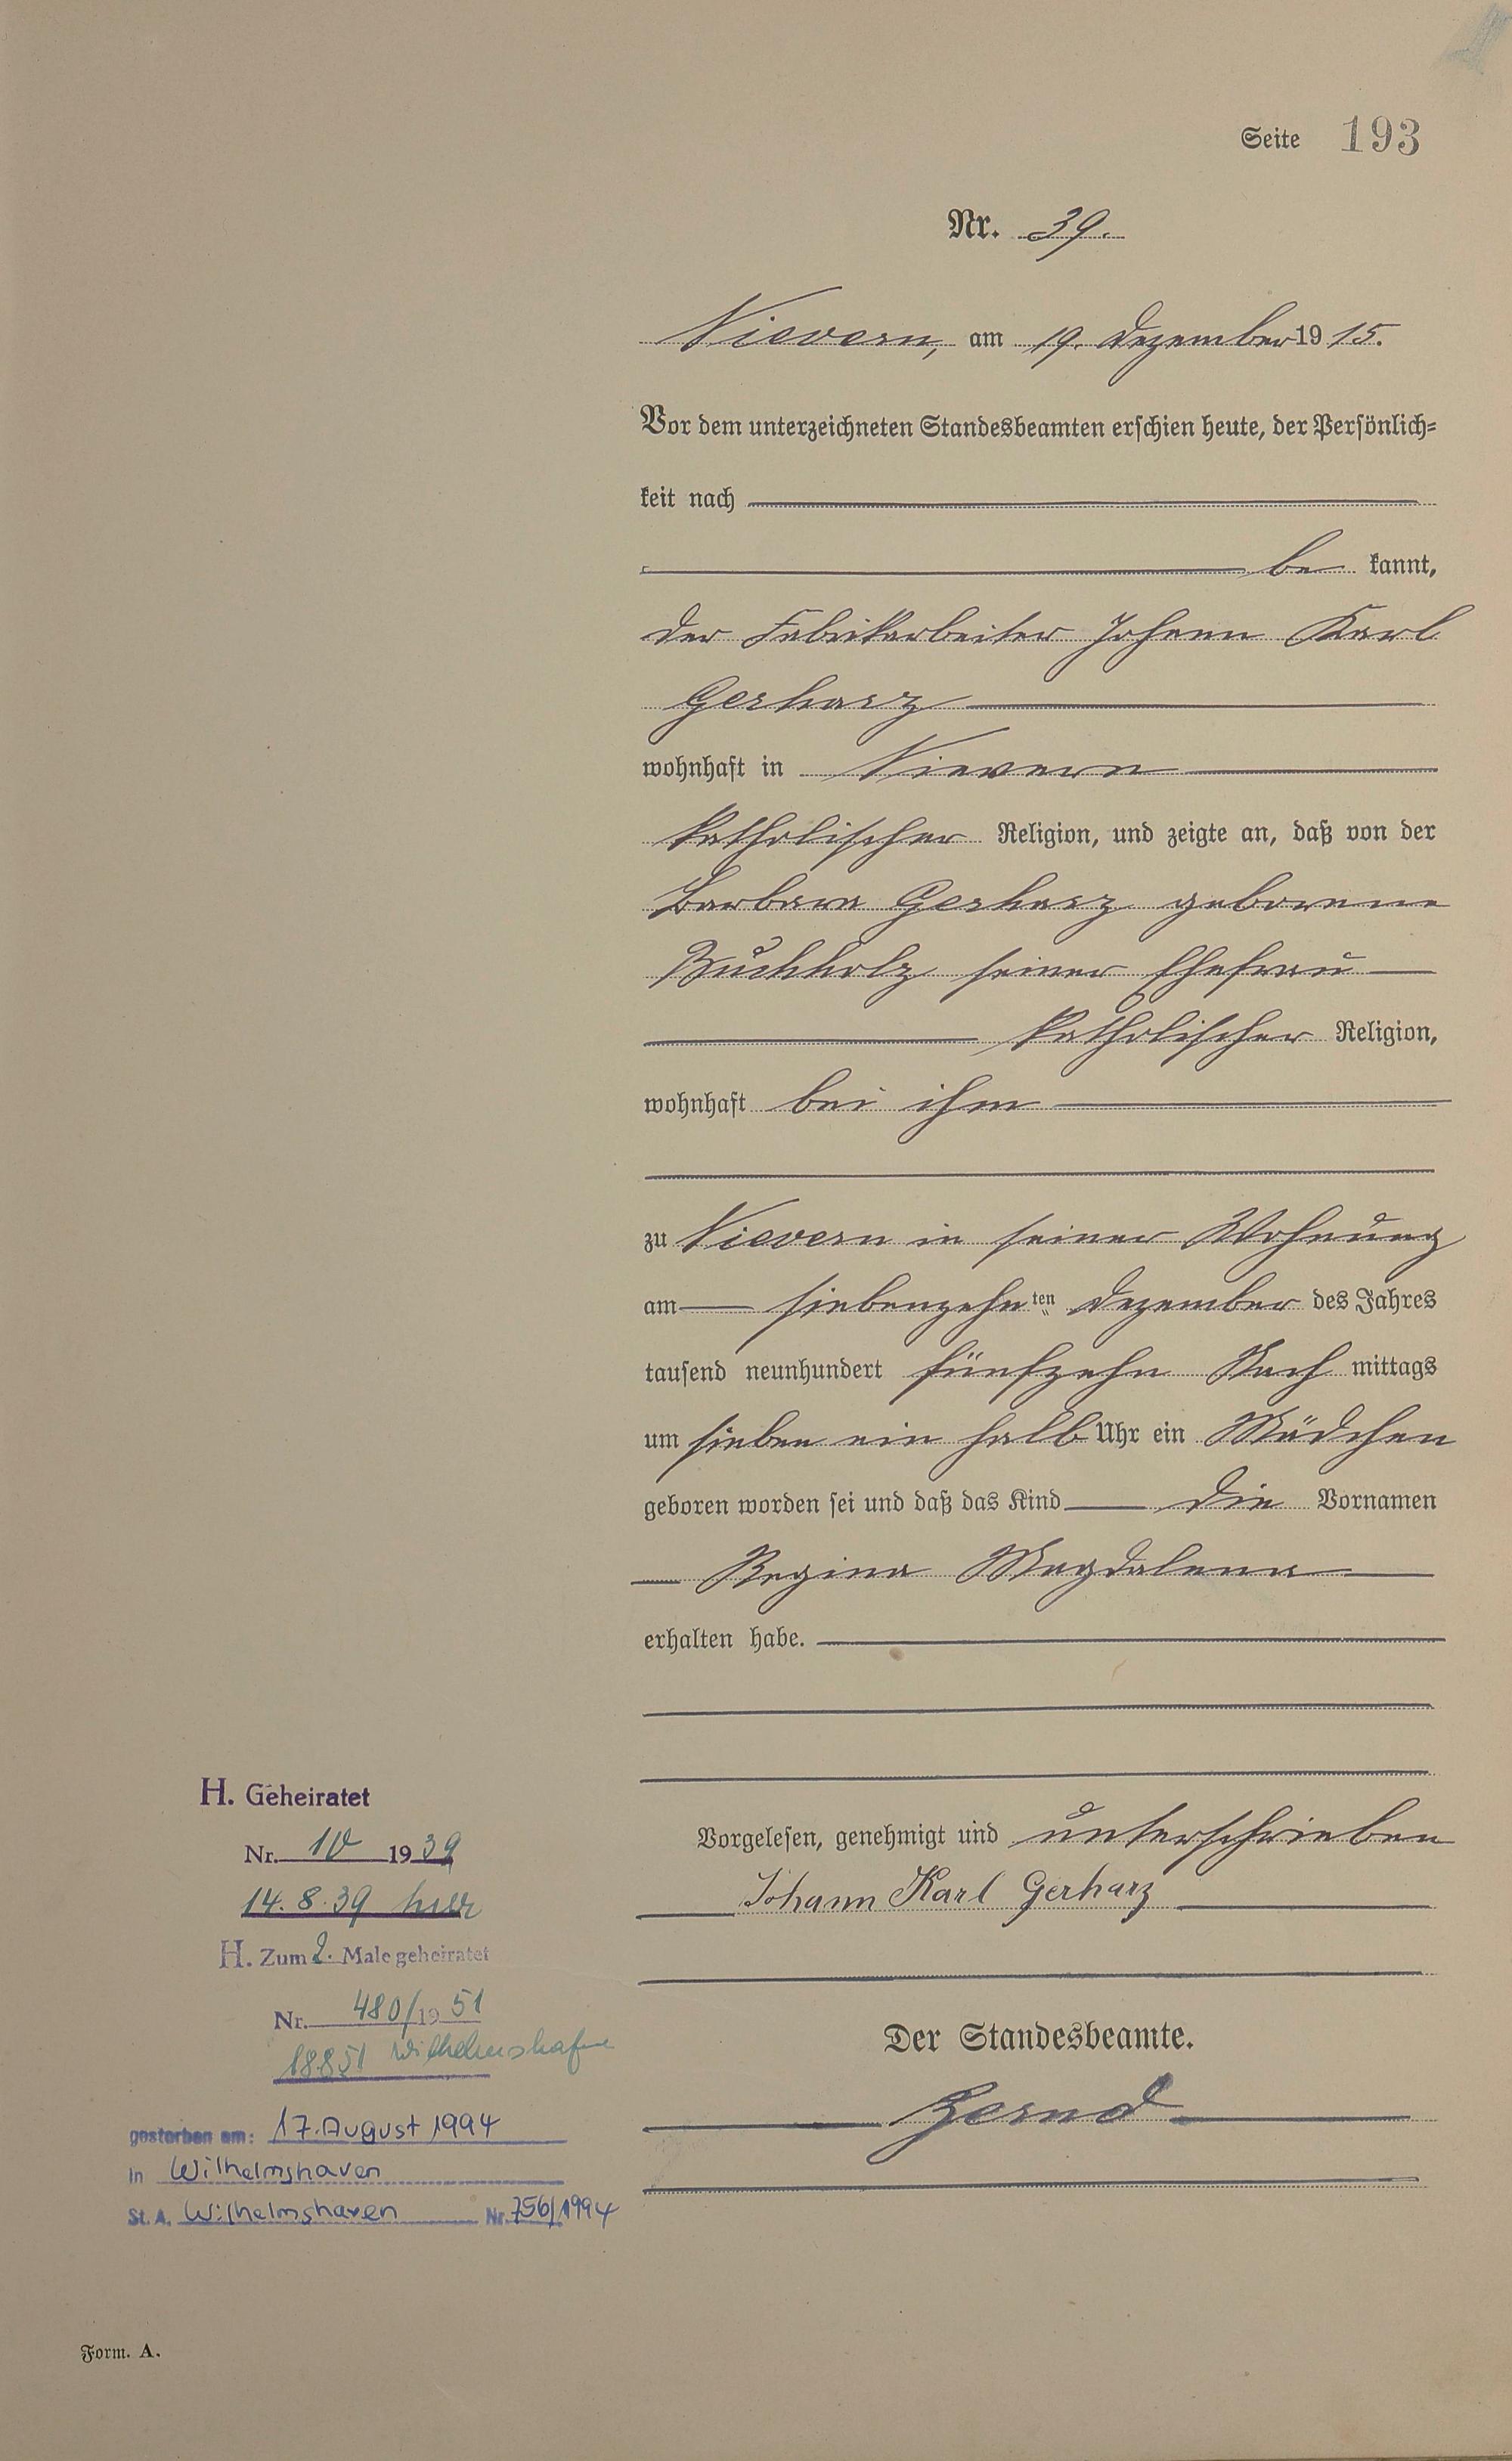 Seite 193
Nr. 39.
Nievern, am 19. Dezember 19 15.
Vor dem unterzeichneten Standesbeamten erschien heute, der Persönlich-
keit nach
be kannt,
der Fabrikarbeiter Johann Karl
Gerharz
wohnhaft in Nievern
katholischer Religion, und zeigte an, daß von der
Barbara Gerharz geborene
Buchholz seiner Ehefrau
katholischer Religion,
wohnhaft bei ihm
zu Nievern in seiner Wohnung
am siebenzehn ten Dezember des Jahres
tausend neunhundert fünfzehn Nach mittags
um sieben ein halb Uhr ein Mädchen
geboren worden sei und daß das Kind die Vornamen
Regina Magdalena
erhalten habe.
Vorgelesen, genehmigt und unterschrieben
Johann Karl Gerharz
Der Standesbeamte.
H. Geheiratet
Nr. 10 1939
14.8.39 hier
H. Zum 2. Male geheiratet
Nr. 480/1951
18851 Wilhelmshafen
gestorben am: 17. August 1994
in Wilhelmshaven
St. A. Wilhelmshaven Nr. 756/1994
Form. A.